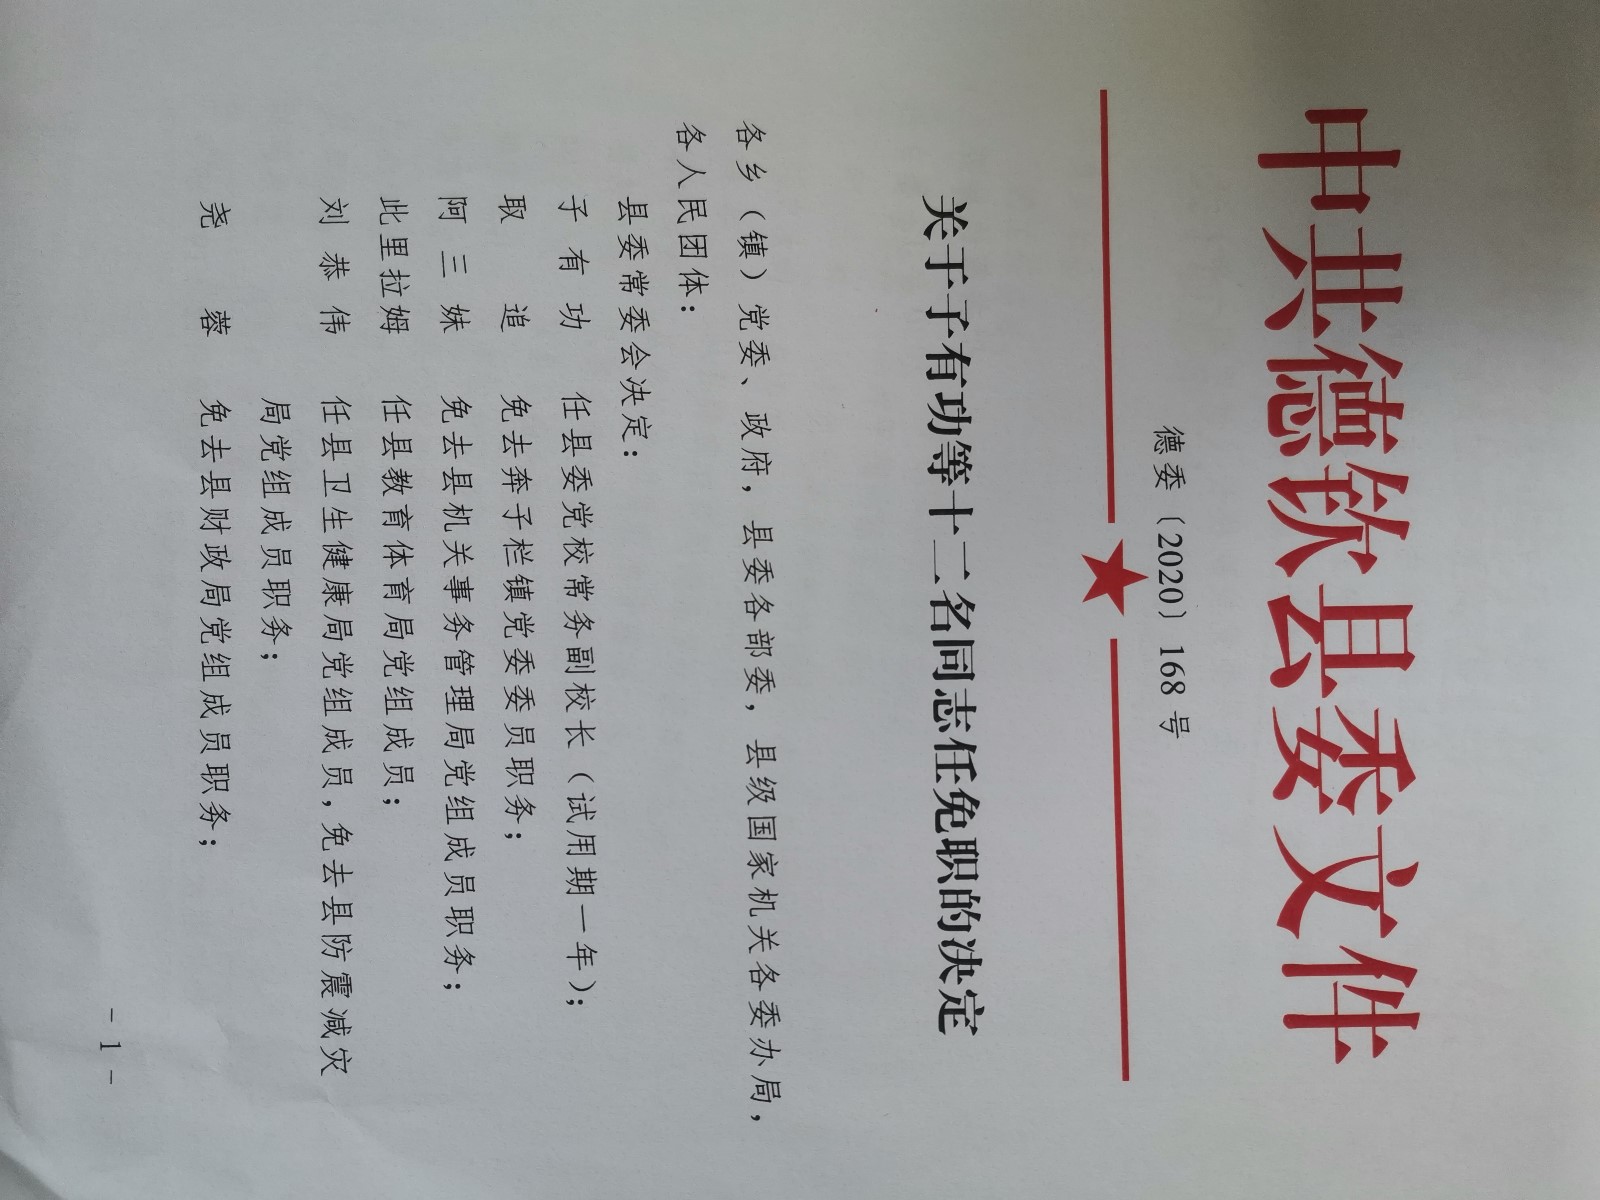 中共德钦县委文件
德委〔2020〕168号
关于子有功等十二名同志任免职的决定
各乡（镇）党委、政府，县委各部委，县级国家机关各委办局，
各人民团体：
县委常委会决定：
子有功 任县委党校常务副校长（试用期一年）；
取追 免去奔子栏镇党委委员职务；
阿三妹 免去县机关事务管理局党组成员职务；
此里拉姆 任县教育体育局党组成员；
刘恭伟 任县卫生健康局党组成员，免去县防震减灾
局党组成员职务；
尧蓉 免去县财政局党组成员职务；
- 1 -